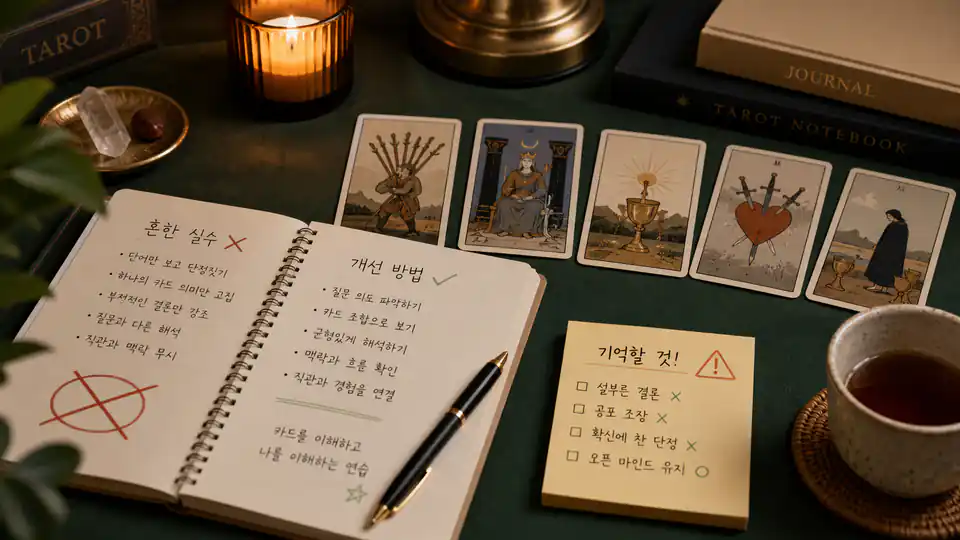 TAROT
JOURNAL
TAROT NOTEBOOK
혼한 실수 ×
• 단어만 보고 단정짓기
• 하나의 카드 의미만 고집
• 부적적인 결론만 강조
• 질문과 다른 해석
• 직관과 맥락 무시
개선 방법 ✓
• 질문 의도 파악하기
• 카드 조합으로 보기
• 균형있게 해석하기
• 맥락과 흐름 확인
• 직관과 경험을 연결
카드를 이해하고
나를 이해하는 연습
☆
기억할 것!
□ 설부른 결론 ×
□ 공포 조장 ×
□ 확신에 찬 단정 ×
□ 오픈 마인드 유지 ○